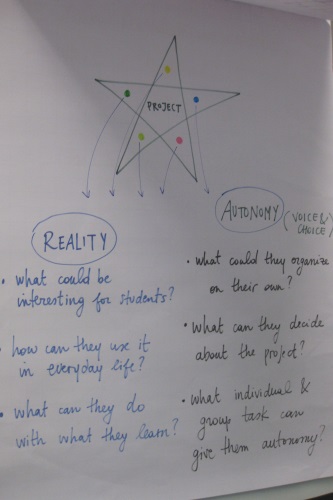 PROJECT
REALITY
• what could be
interesting for students?
• how can they use it
in everyday life?
• what can they do
with what they learn?
AUTONOMY (VOICE &
CHOICE)
• what could they organize
on their own?
• what can they decide
about the project?
• what individual &
group task can
give them autonomy?